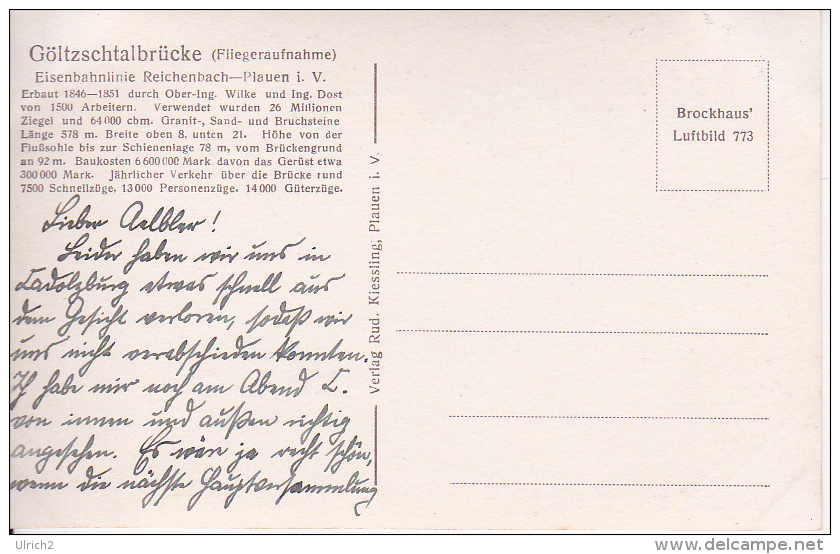 Göltzschtalbrücke (Fliegeraufnahme)
Eisenbahnlinie Reichenbach—Plauen i. V.
Erbaut 1846—1851 durch Ober-Ing. Wilke und Ing. Dost
von 1500 Arbeitern. Verwendet wurden 26 Millionen
Ziegel und 64000 cbm. Granit-, Sand- und Bruchsteine
Länge 578 m. Breite oben 8, unten 21. Höhe von der
Flußsohle bis zur Schienenlage 78 m, vom Brückengrund
an 92 m. Baukosten 6600000 Mark davon das Gerüst etwa
300000 Mark. Jährlicher Verkehr über die Brücke rund
7500 Schnellzüge, 13000 Personenzüge. 14000 Güterzüge.
Lieber Aelbler!
Leider haben wir uns in
Cadolzburg etwas schnell aus
dem Gesicht verloren, sodaß wir
uns nicht verabschieden konnten.
Ich habe mir noch am Abend C.
von innen und außen richtig
angesehen. Es wäre ja recht schön,
wenn die nächste Hauptversammlung
Verlag Rud. Kiessling, Plauen i. V.
Brockhaus'
Luftbild 773
Ulrich2
www.delcampe.net